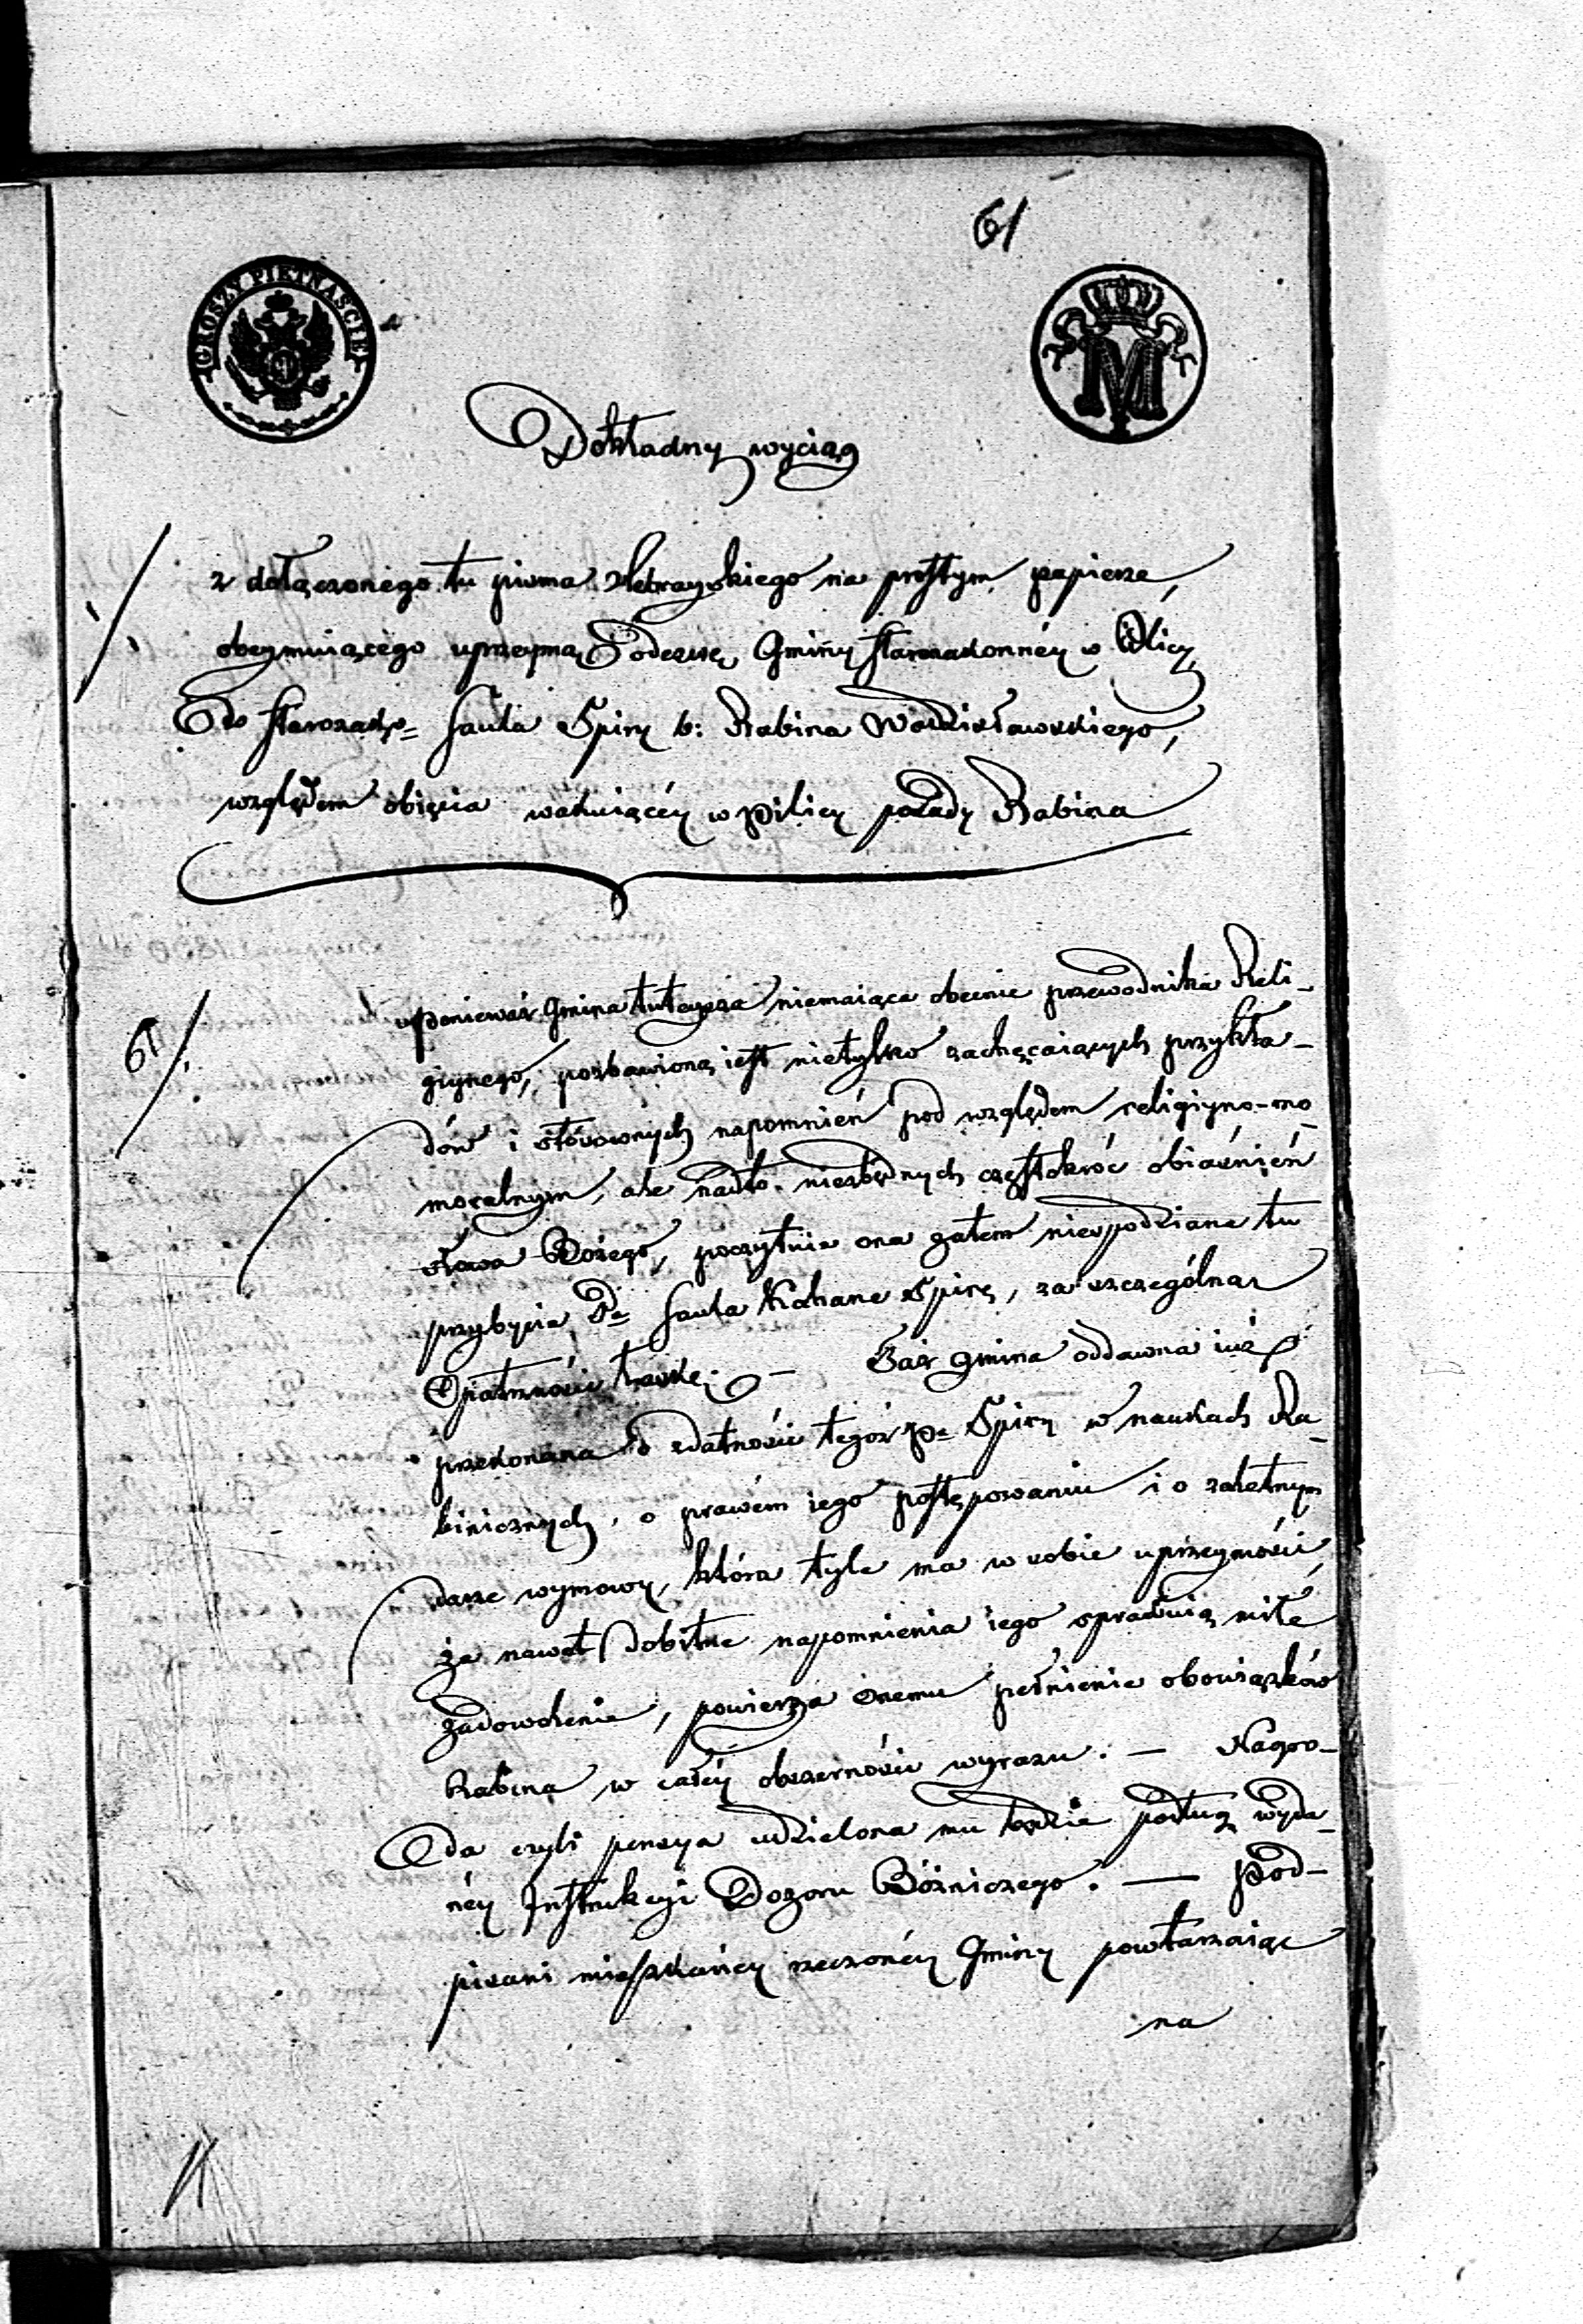 61
GROSZY PIETNASCIE
M
Dokładny wyciąg
z dołączonego tu pisma Hebrayskiego na prostym papierze,
obeymuiącego uprzeymą Odezwę Gminy starozakonnéy w Pilicy
Do Starozak= Saula Spiry b: Rabina Wodzisławskiego,
względem obięcia wakuiącéy w Pilicy posady Rabina
Ponieważ Gmina tuteysza niemaiąca obecnie przewodnika Reli-
giynego, pozbawioną iest nietylko zachęcaiących przykła-
dów i stósownych napomnień pod względem religiyno-mo-
moralnym, ale nadto niezbędnych częstokróc obiaśnień
słowa Bożego, poczytuie ona zatem niespodziane tu
przybycie Pa Saula Kahane Spirę, za szczególną
Opatrzności łaskę. — Taż gmina oddawna iuż
przekonana o zdatności tegoż Pa Spiry w naukach Ra-
binicznych, o prawém iego postępowaniu i o zaletnym
darze wymowy, która tyle ma w sobie uprzeymości,
że nawet dobitne napomnienia iego sprawią miłe
zadowolenie, powierza Onemu pełnienie obowiązków
Rabina w całéy obszerności wyrazu. — Nagro-
da czyli pensya udzielona mu będzie podług wyda-
néy Instrukcyi Dozoru Bóżniczego. — Pod-
pisani mieszkańcy rzeczonéy Gminy powtarzaiąc
na
61